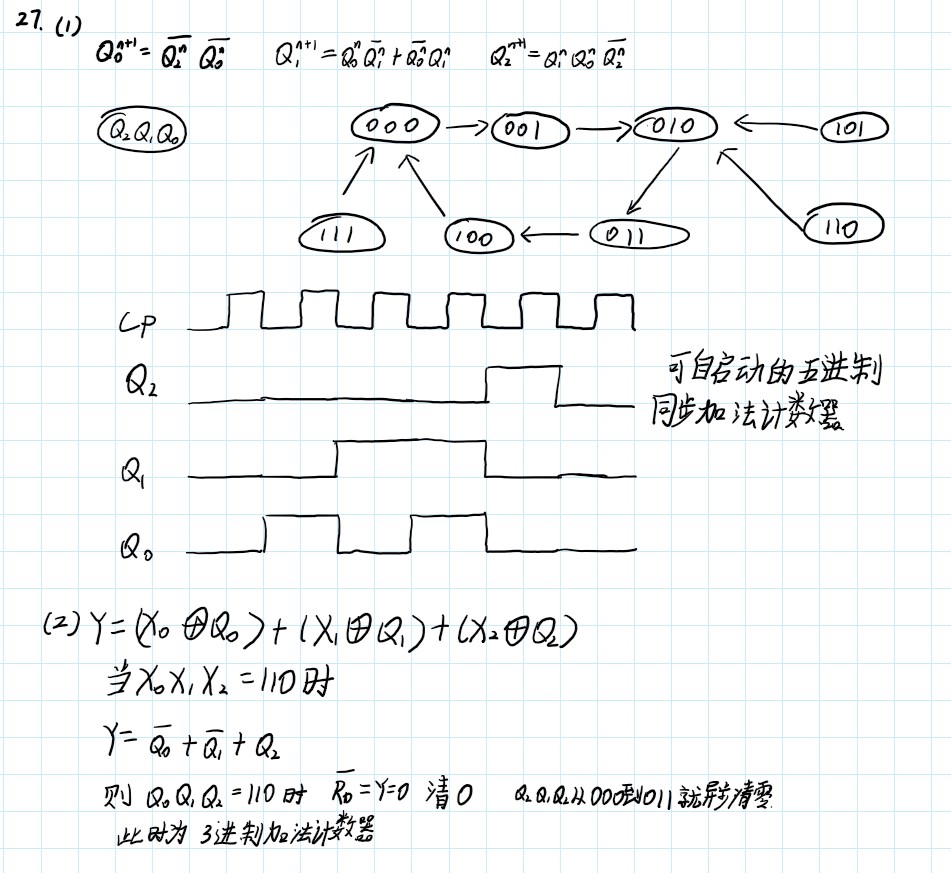 27. (1)
Q₀ⁿ⁺¹ = \overline{Q₂ⁿ} \overline{Q₀ⁿ} Q₁ⁿ⁺¹ = Q₀ⁿ \overline{Q₁ⁿ} + \overline{Q₀ⁿ} Q₁ⁿ Q₂ⁿ⁺¹ = Q₁ⁿ Q₀ⁿ \overline{Q₂ⁿ}
Q₂Q₁Q₀ 000 → 001 → 010 ← 101
111 100 ← 011 110
CP
Q₂ 可自启动的五进制
同步加法计数器
Q₁
Q₀
(2) Y = (X₀⊕Q₀) + (X₁⊕Q₁) + (X₂⊕Q₂)
当X₀X₁X₂ = 110时
Y = \overline{Q₀} + \overline{Q₁} + Q₂
则 Q₀Q₁Q₂ = 110时 \overline{R_D} = Y = 0 清0 Q₂Q₁Q₀从000到011就异步清零
此时为 3进制加法计数器